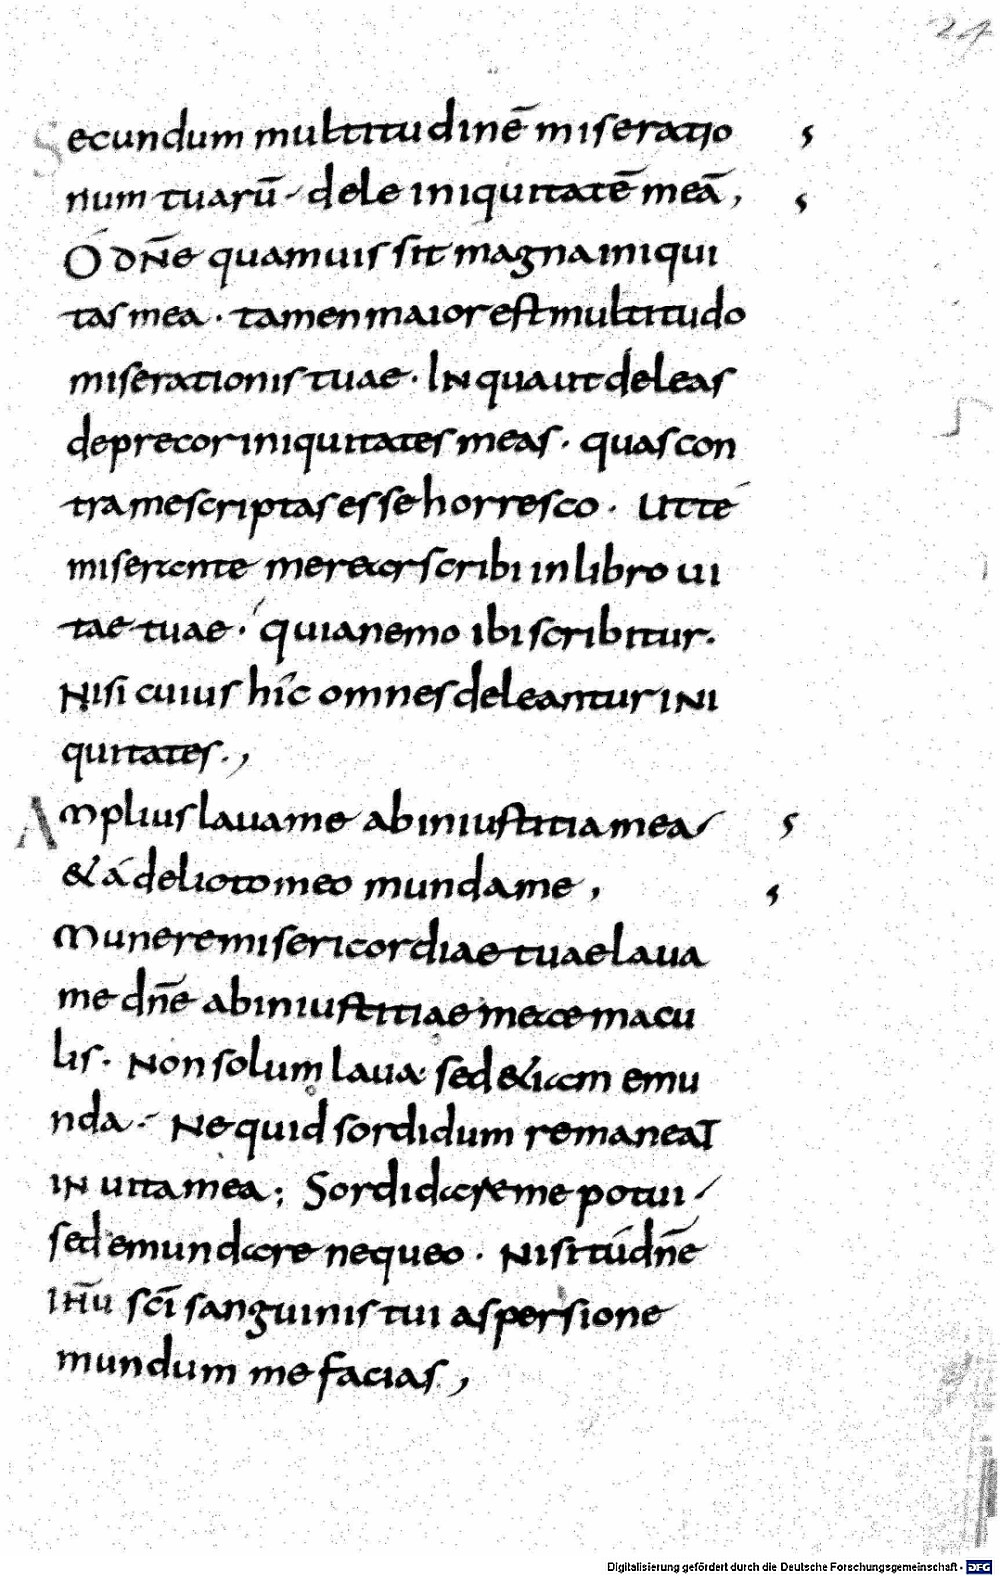 24
Secundum multitudinē miseratio
num tuarū dele iniquitatē meā,
O dn̄e quamuis sit magna iniqui
tas mea · tamen maior est multitudo
miserationis tuae · In qua ut deleas
deprecor iniquitates meas · quas con
tra me scriptas esse horresco · Ut te
miserante merear scribi in libro ui
tae tuae · quia nemo ibi scribitur ·
Nisi cuius hic omnes deleantur ini
quitates ·,
Amplius laua me ab iniustitia mea
& a delicto meo munda me,
Munere misericordiae tuae laua
me dn̄e ab iniustitiae meae macu
lis · Non solum laua sed & iam emu
nda · Ne quid sordidum remaneat
in uita mea; Sordidare me potui
sed emundare nequeo · Nisi tu dn̄e
ihū sc̄i sanguinis tui aspersione
mundum me facias,
Digitalisierung gefördert durch die Deutsche Forschungsgemeinschaft - DFG